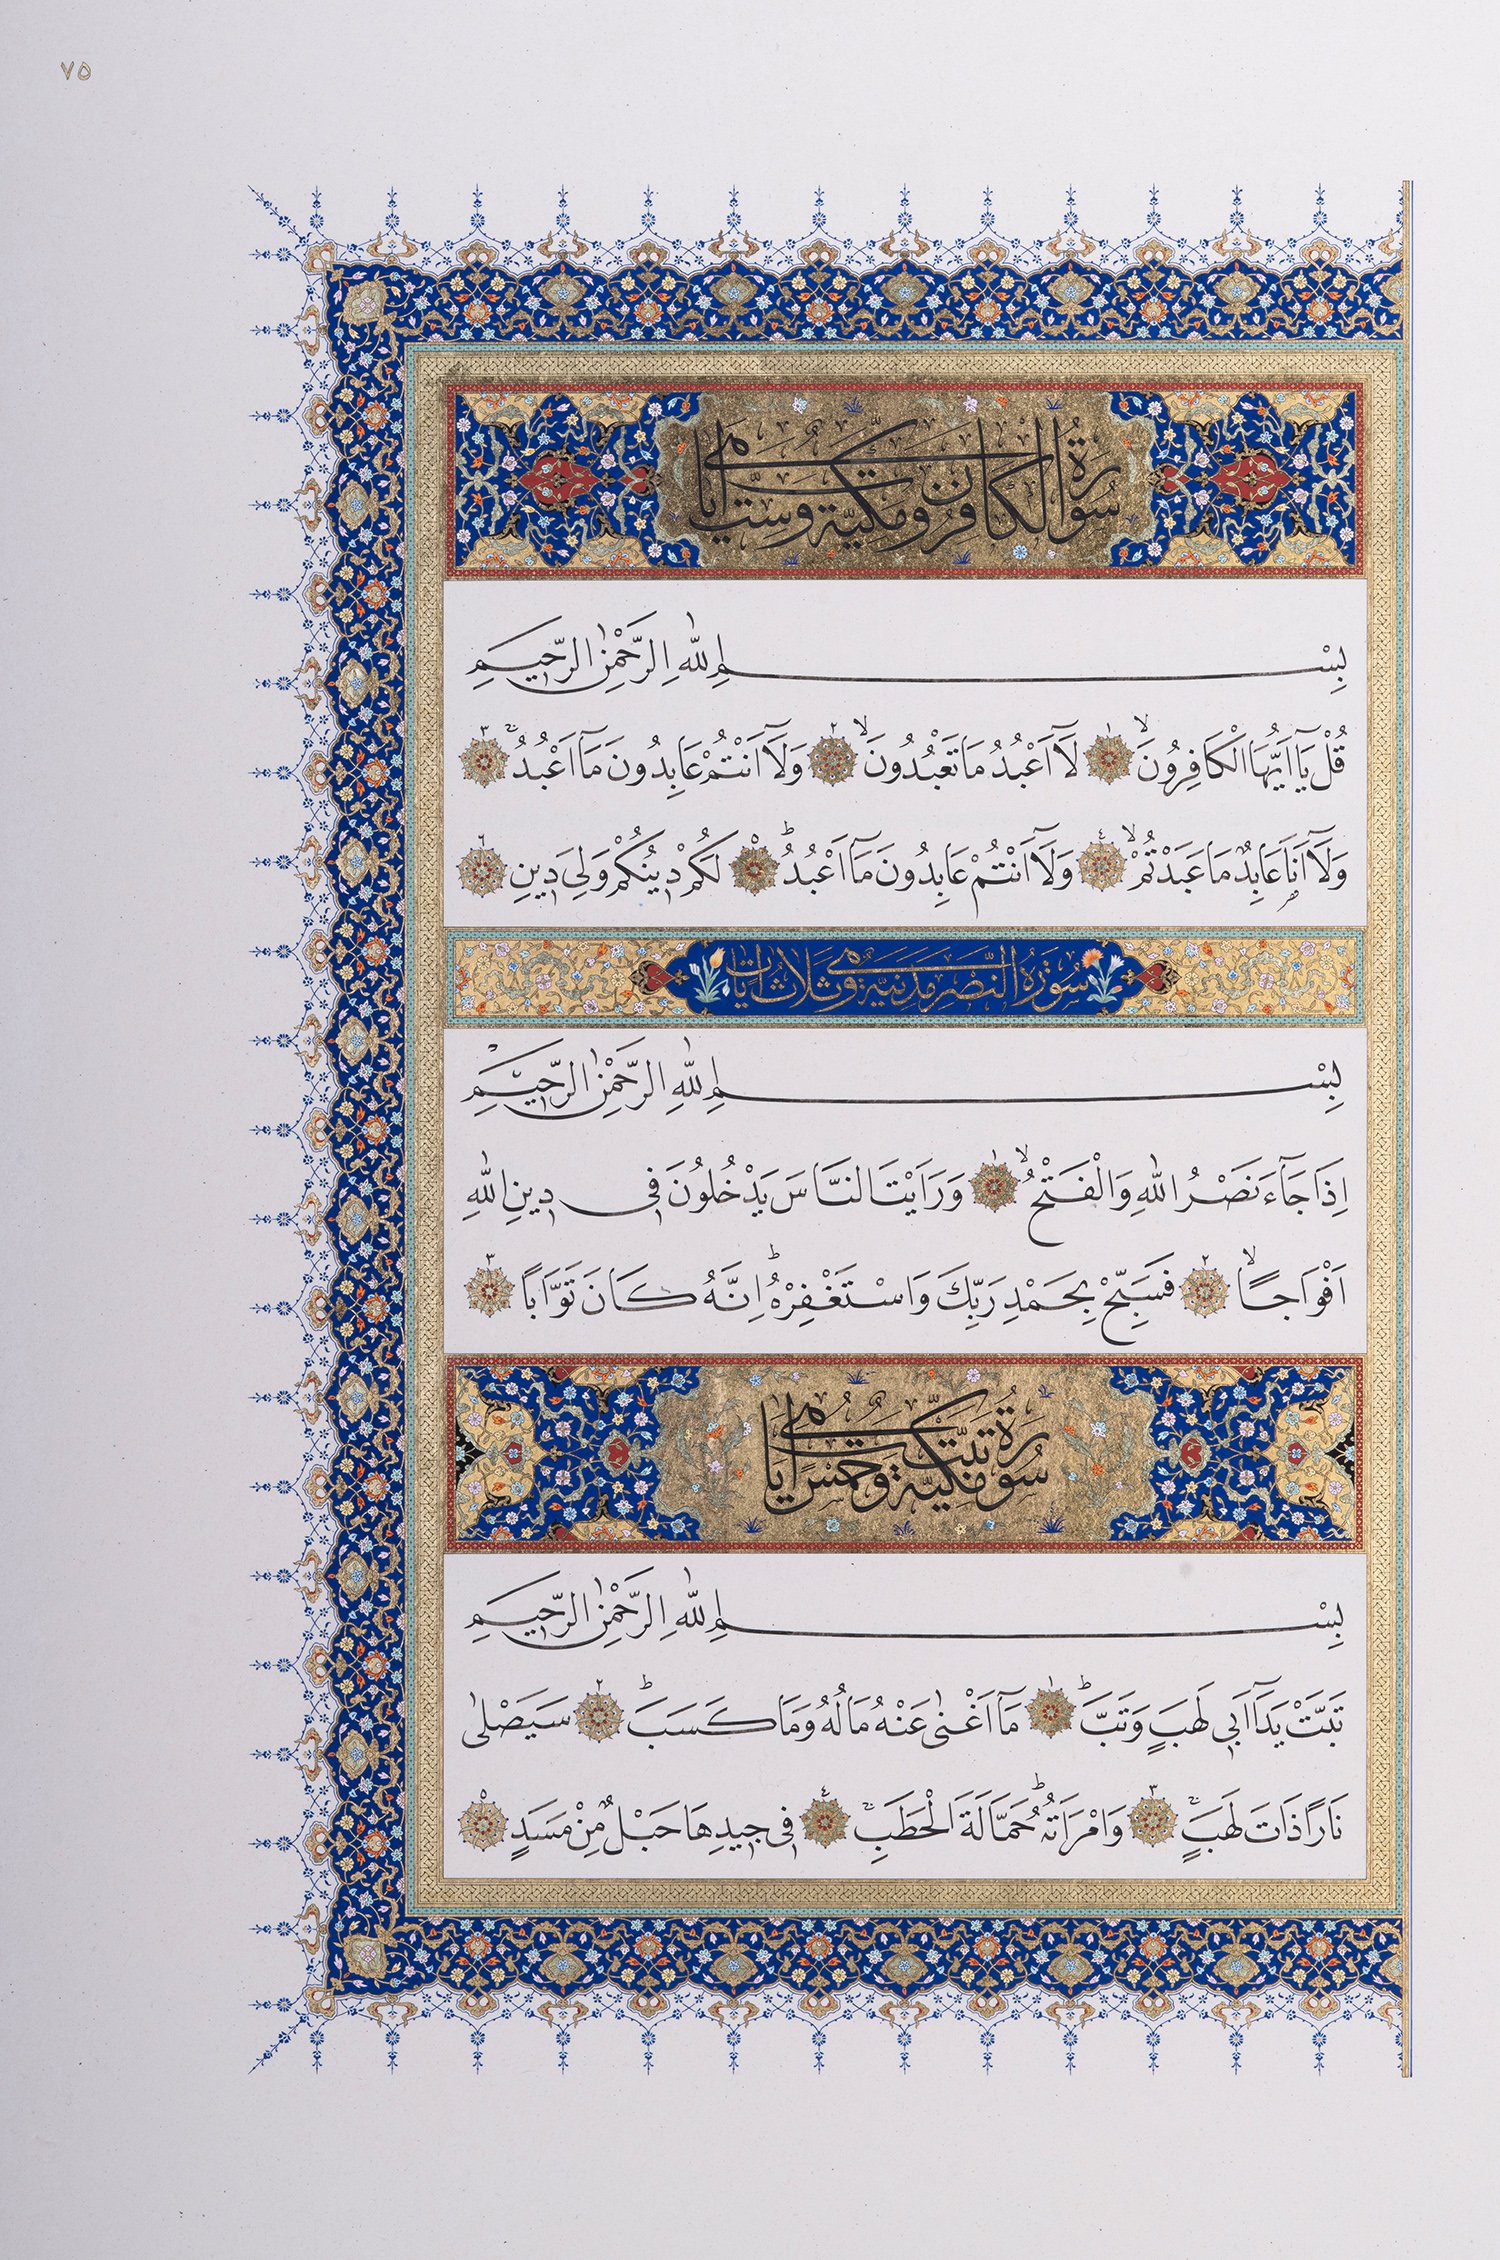 ٧٥
سُورَةُ الْكَافِرُونَ وَهِيَ مَكِّيَّةٌ وَسِتُّ اٰيَاتٍ
بِسْمِ اللّٰهِ الرَّحْمٰنِ الرَّحِيمِ
قُلْ يَٓا اَيُّهَا الْكَافِرُونَۙ ١ لَٓا اَعْبُدُ مَا تَعْبُدُونَۙ ٢ وَلَٓا اَنْتُمْ عَابِدُونَ مَٓا اَعْبُدُۚ ٣
وَلَٓا اَنَا۬ عَابِدٌ مَا عَبَدْتُمْۙ ٤ وَلَٓا اَنْتُمْ عَابِدُونَ مَٓا اَعْبُدُۜ ٥ لَكُمْ دِينُكُمْ وَلِيَ دِينِ ٦
سُورَةُ النَّصْرِ مَدَنِيَّةٌ وَهِيَ ثَلَاثُ اٰيَاتٍ
بِسْمِ اللّٰهِ الرَّحْمٰنِ الرَّحِيمِ
اِذَا جَٓاءَ نَصْرُ اللّٰهِ وَالْفَتْحُۙ ١ وَرَاَيْتَ النَّاسَ يَدْخُلُونَ فِي دِينِ اللّٰهِ
اَفْوَاجًاۙ ٢ فَسَبِّحْ بِحَمْدِ رَبِّكَ وَاسْتَغْفِرْهُۜ اِنَّهُ كَانَ تَوَّابًا ٣
سُورَةُ تَبَّتْ وَهِيَ مَكِّيَّةٌ وَخَمْسُ اٰيَاتٍ
بِسْمِ اللّٰهِ الرَّحْمٰنِ الرَّحِيمِ
تَبَّتْ يَدَٓا اَبِي لَهَبٍ وَتَبَّۜ ١ مَٓا اَغْنٰى عَنْهُ مَالُهُ وَمَا كَسَبَۜ ٢ سَيَصْلٰى
نَارًا ذَاتَ لَهَبٍۚ ٣ وَامْرَاَتُهُۜ حَمَّالَةَ الْحَطَبِۚ ٤ فِي جِيدِهَا حَبْلٌ مِنْ مَسَدٍ ٥